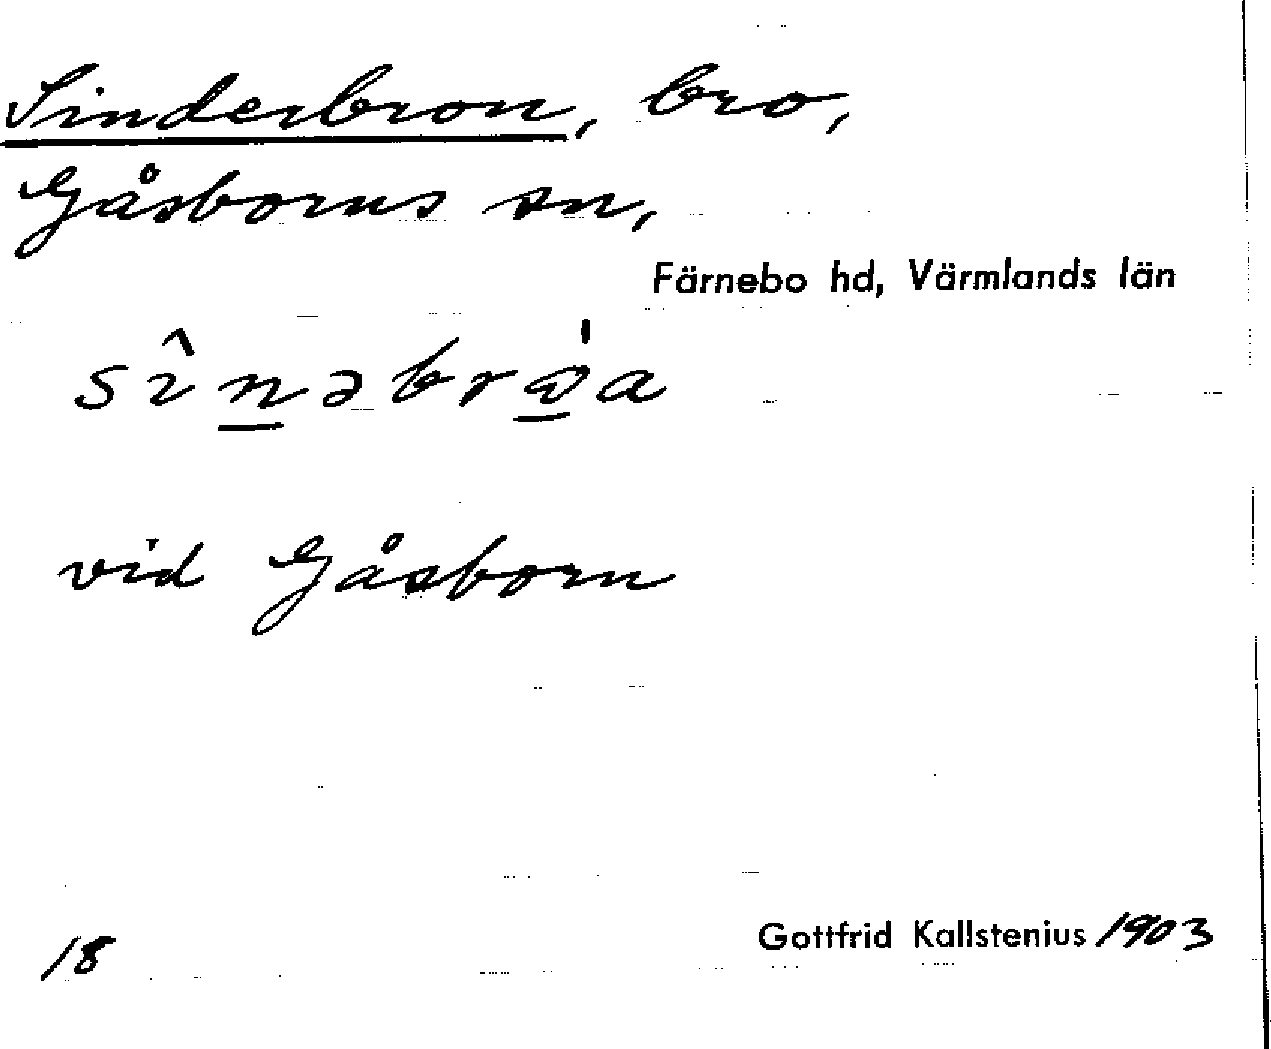 Sinderbron, bro,
Gåsborns sn,
Färnebo hd, Värmlands län
vid Gåsborn
18
Gottfrid Kallstenius 1903